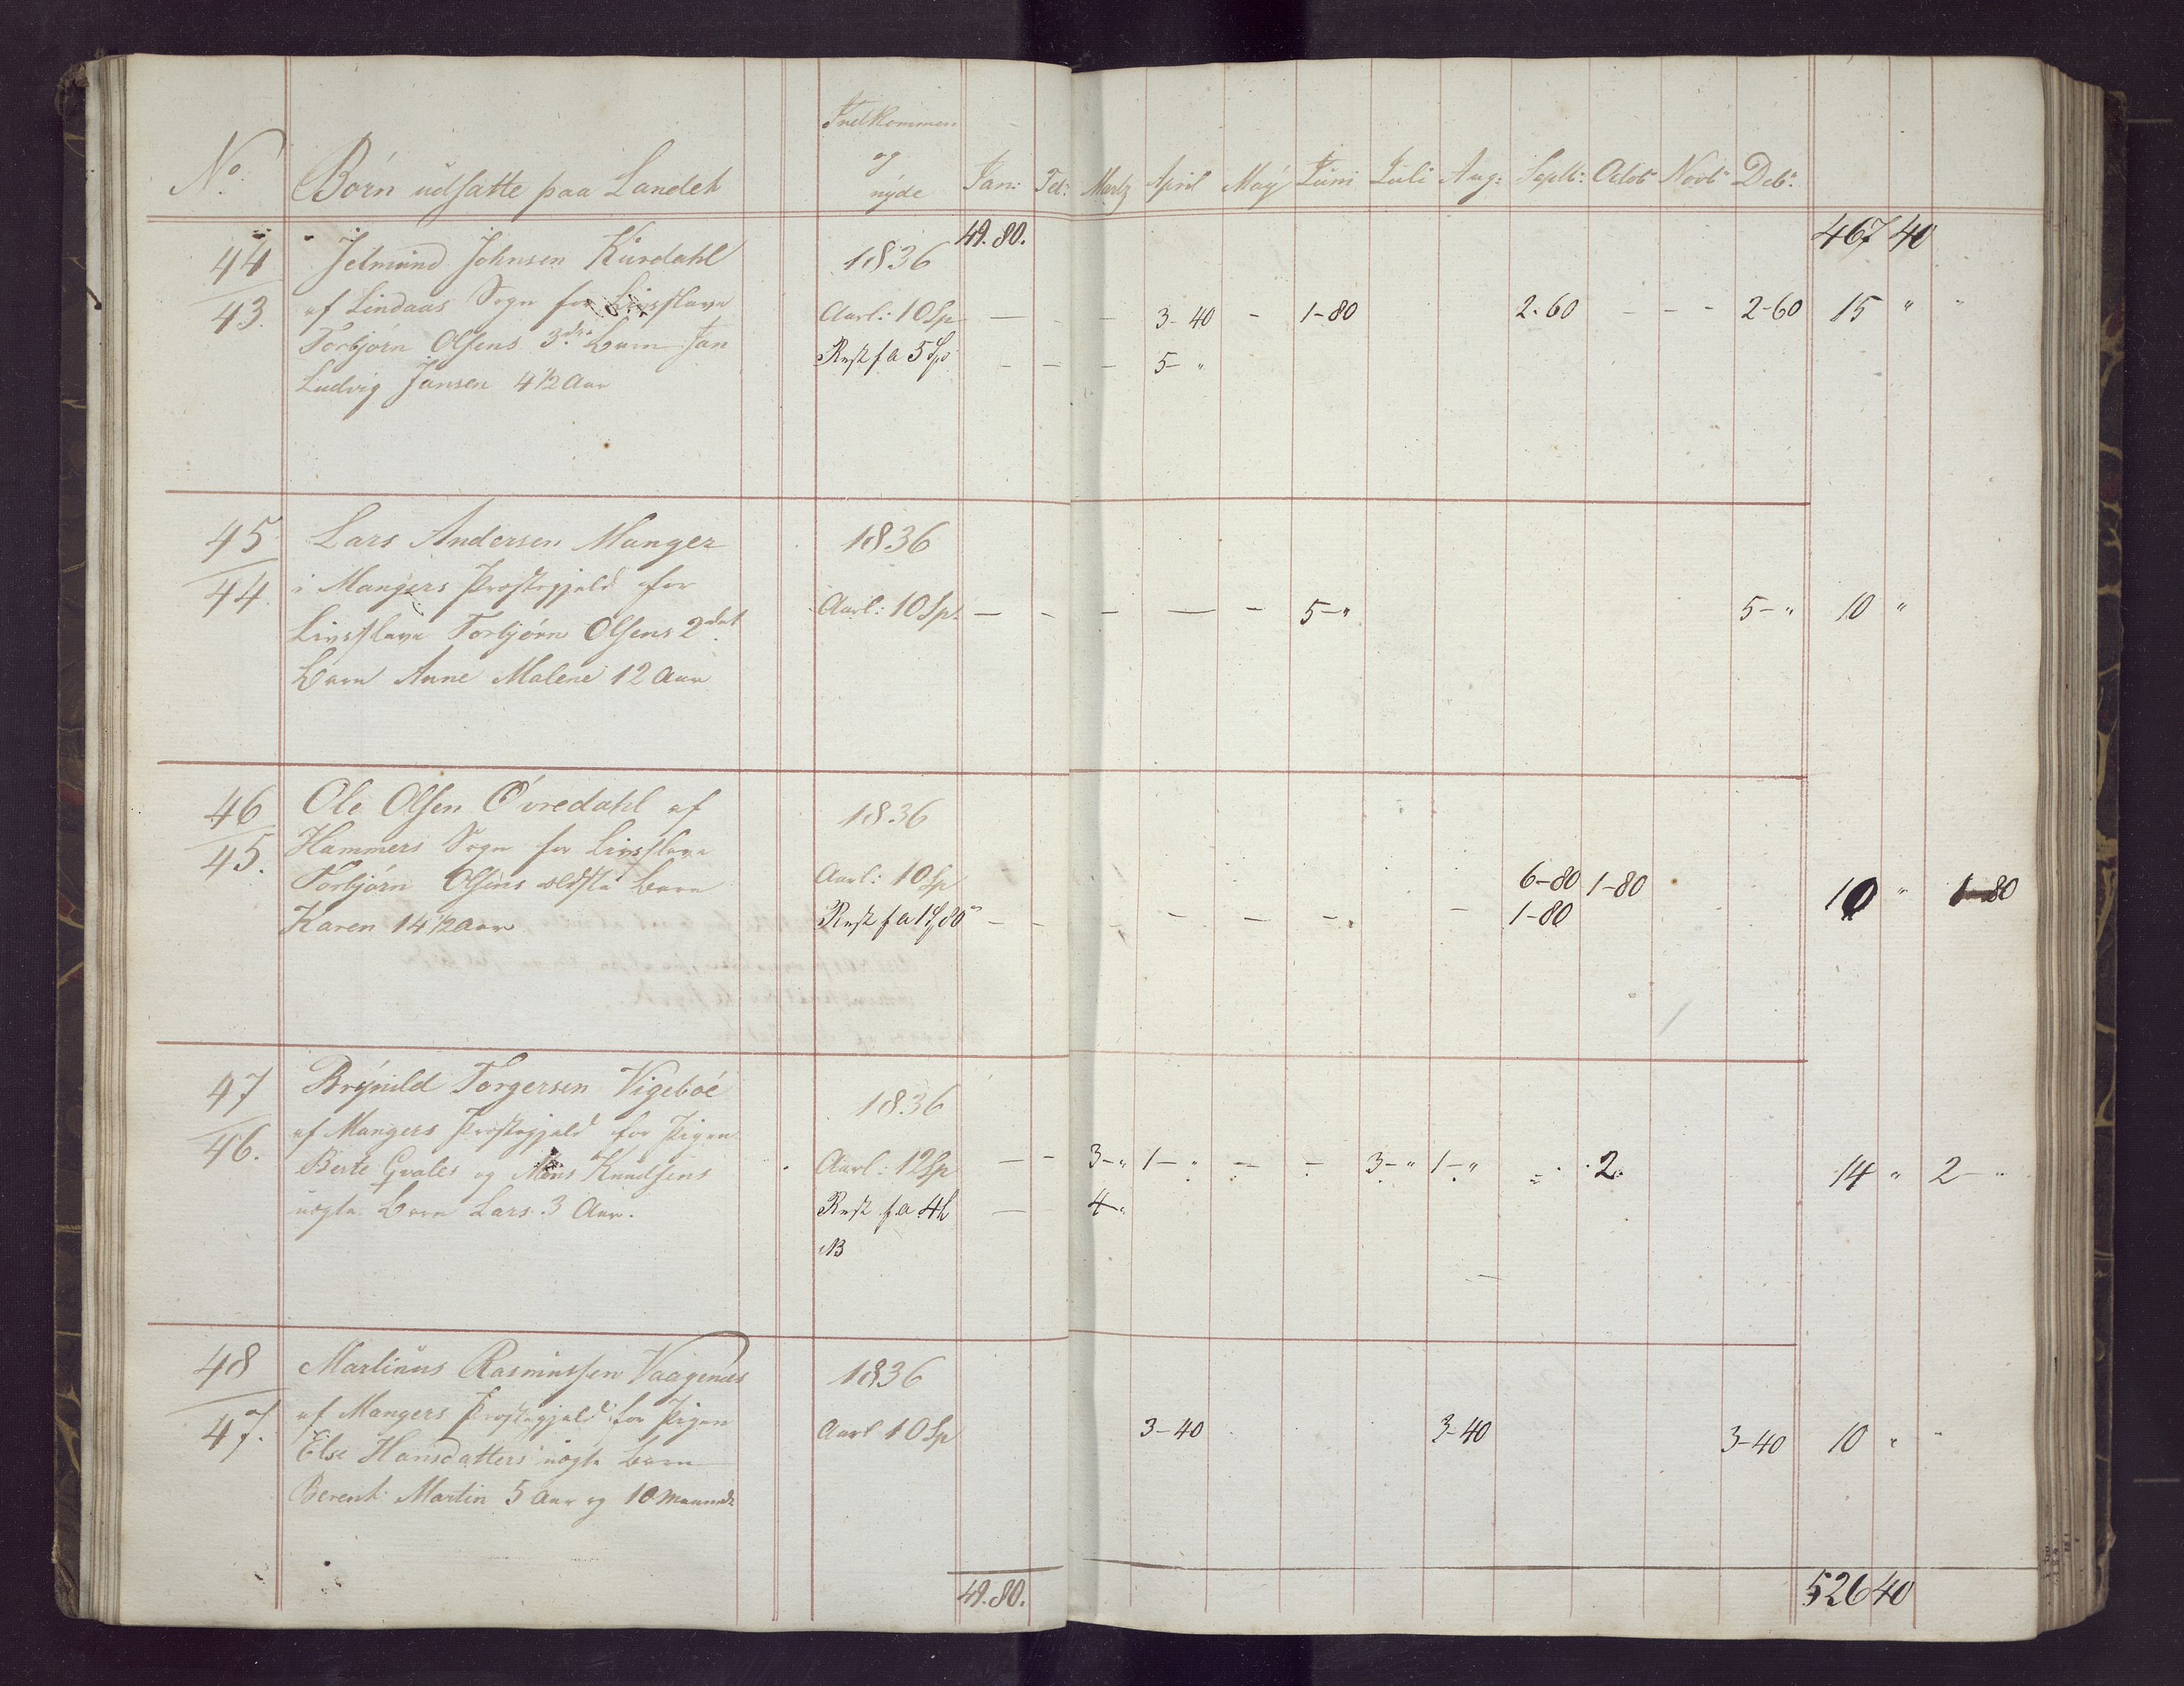 Indkommen
og
No. Börn udsatte paa Landet nyde Jan: Feb: Martz April May Juni Juli Aug: Septb: Octob: Novb: Deb:
49. 80. 467 40
44 Jetmund Johnsen Kurdahl 1836
43. af Lindaas Sogn for Livsslave Aarl: 10 Sp — - — 3-40 - 1-80 2-60 - - - 2-60 15 " "
Torbjörn Olsens 3die Barn Jan Rest f a 5 Sp - — - 5- "
Ludvig Jansen 4 1/2 Aar
45 Lars Andersen Manger 1836
44. i Mangers Præstegjeld for Aarl: 10 Sp. — - — — - 5-" 5-" 10 "
Livsslave Torbjörn Olsens 2det
Barn Anne Malene 12 Aar
46 Ole Olsen Övredahl af 1836
45. Hammers Sogn for Livsslave
Torbjörn Olsens ældste Barn Aarl: 10 Sp 6-80 1-80 10 " 1-80
Karen 14 1/2 Aar Rest f a 1 Sp 80 — - - - - - 1-80
47 Brynild Torgersen Vigeboe 1836
46. af Mangers Præstegjeld for Pigen
Berte Gvales og Mons Knudsens Aarl: 12 Sp — - 3-" 1-" - - 3-" 1-" 2. 14 " 2-"
uægte Barn Lars 3 Aar. Rest f. a 4 — 4-"
NB
48 Martinus Rasmussen Vaagenæs 1836
47. af Mangers Præstegjeld for Pigen Aarl 10 Sp 3-40 3-40 3-40 10 " "
Else Hansdatters uægte Barn
Berent Martin 5 Aar og 10 Maaneder
49. 80. 526 40